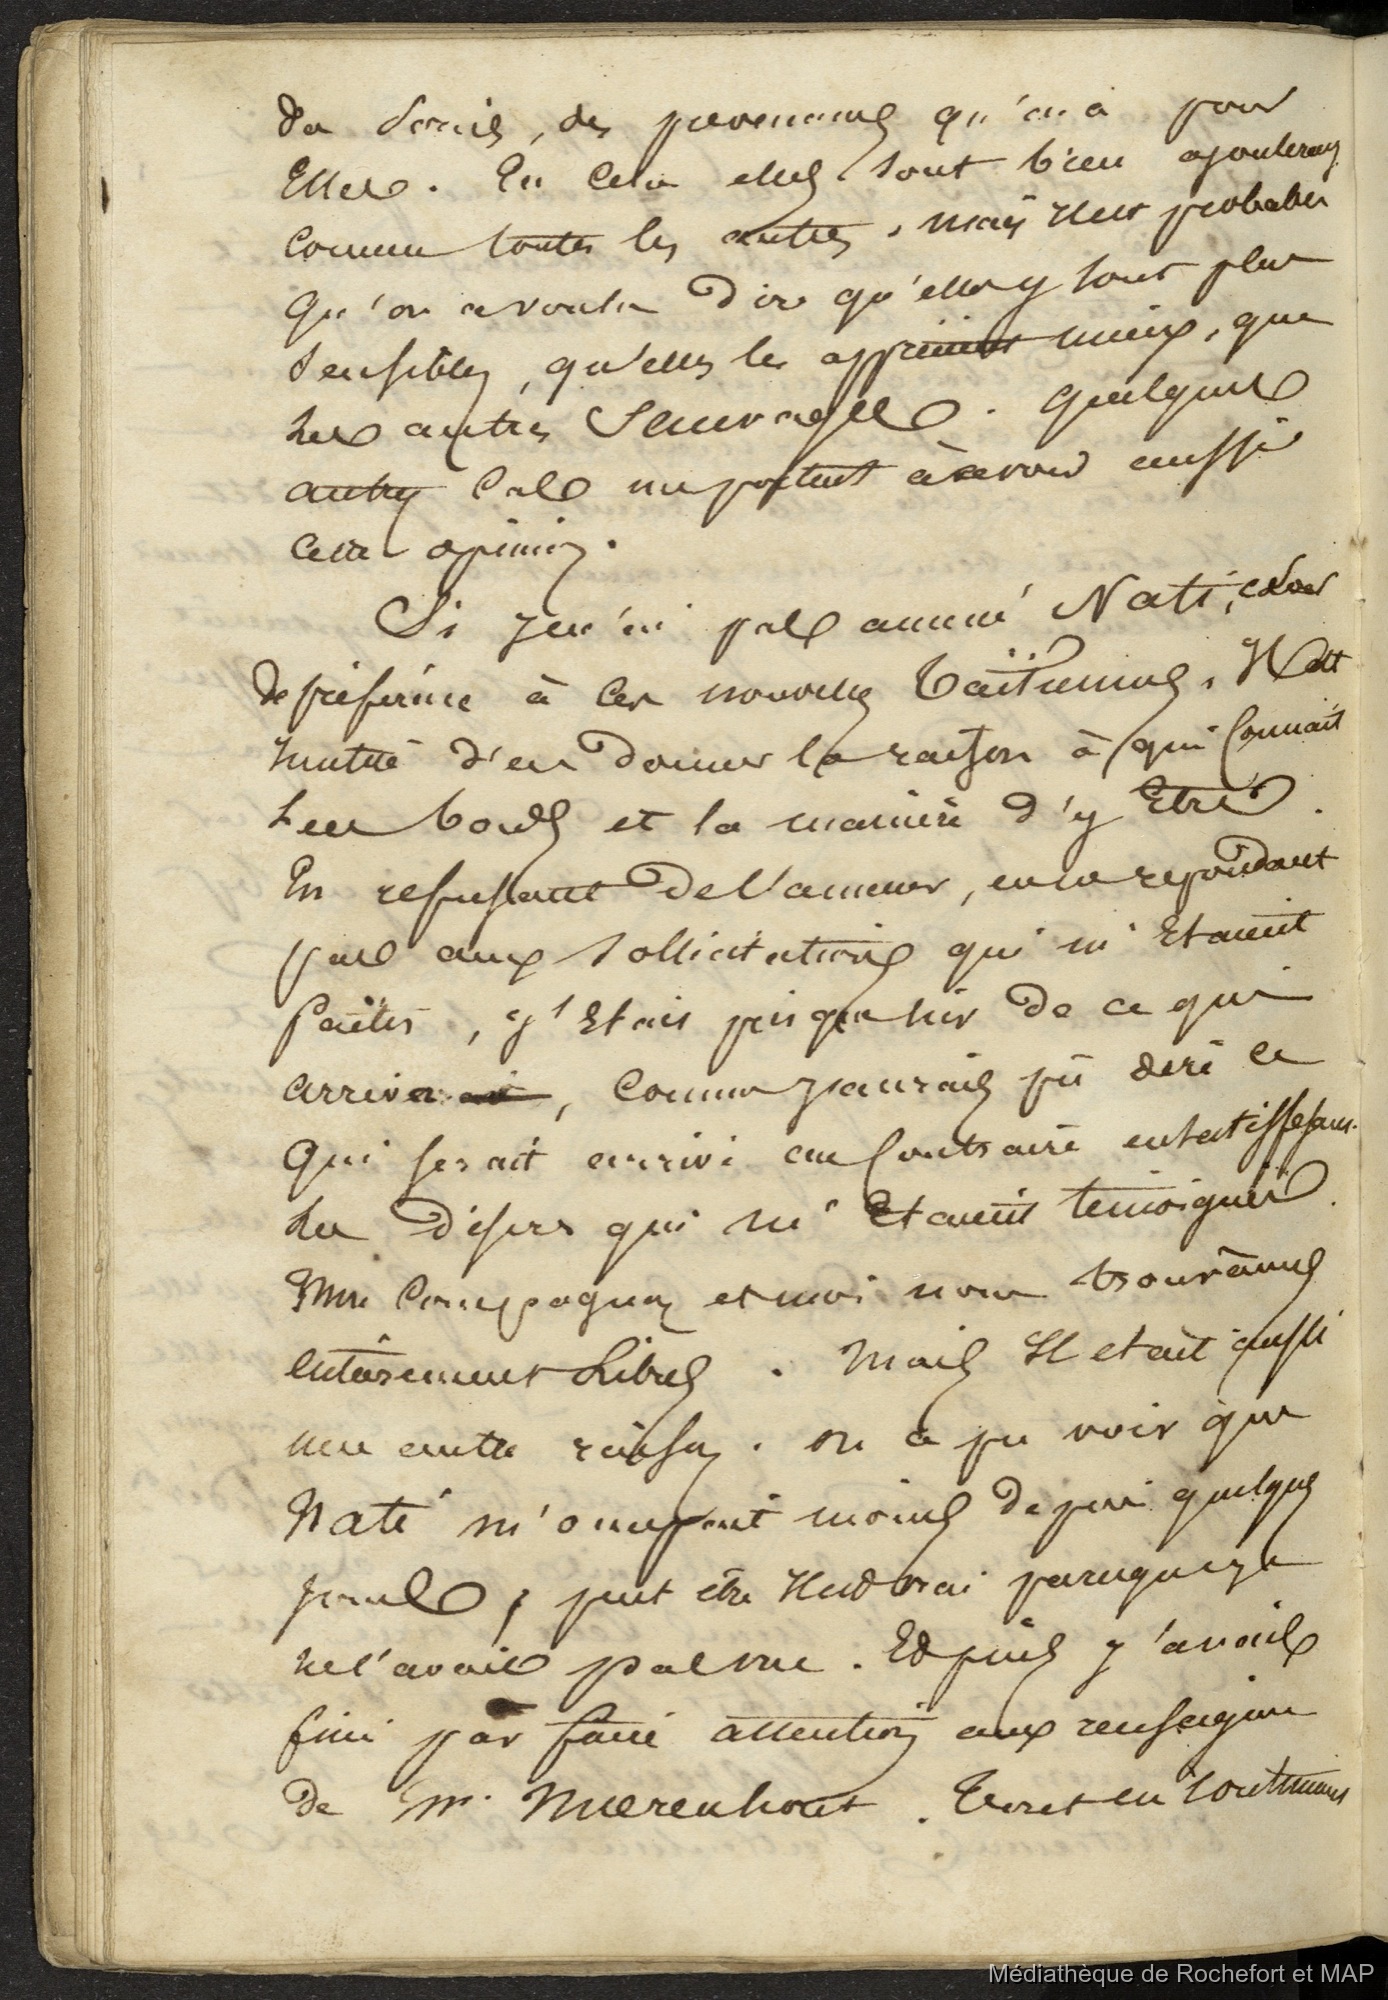 des soins, des prevenances qu'on a pour
Elles. En cela elles sont bien ajouterons
comme toutes les autres, mais il est probable
qu'on a voulu dire qu'elles y sont plus
sensibles, qu'elles les apprécient mieux, que
les autres Sauvages. quelques
autres cas me portent à avoir aussi
cette opinion.
Si je n'ai pas amené Nati,
de préférence à ces nouvelles Taïtiennes, Il est
inutile d'en donner la raison à qui connait
les bords et la manière d'y Etre.
En refusant de l'amener, en ne repondant
pas aux sollicitations qui m'Etaient
faites, j'Etais presque sûr de ce qui
arriva, comme j'aurais pû dire ce
qui serait arrivé au contraire en satisfesant
les désirs qui m'Etaient temoignés.
Mes compagnons et moi nous trouvâmes
entièrement libres. Mais Il etait aussi
une autre raison. on a pu voir que
Naté m'occupait moins depuis quelques
jours, peut être Il est vrai parceque je
ne l'avais pas vue. Et puis j'avais
fini par faire attention aux renseignem
de Mr. Muerenhout.